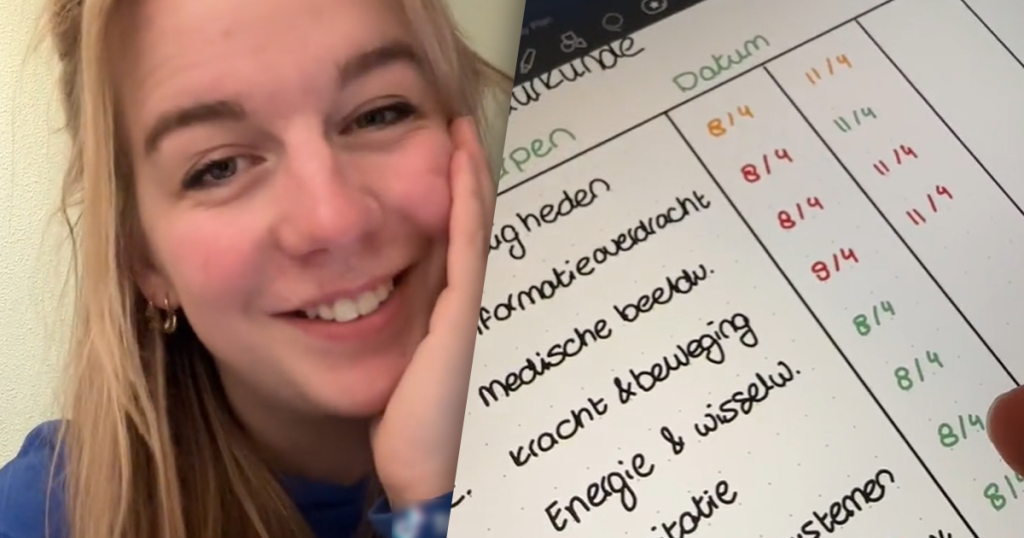 urkunde
rpen Datum
igheden 8/4 11/4
formatieoverdracht 8/4 11/4
Medische beeldv. 8/4 11/4
Kracht & beweging 9/4 11/4
Energie & wisselw. 8/4
itatie 8/4
ystemen 8/4
8/4